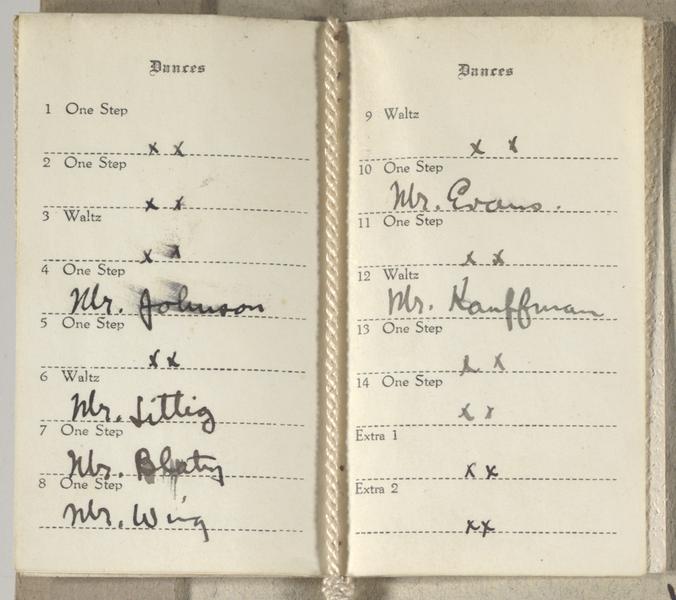 Dances
1 One Step
x x
2 One Step
x x
3 Waltz
x x
4 One Step
Mr. Johnson
5 One Step
x x
6 Waltz
Mr. Sittig
7 One Step
Mr.
8 One Step
Mr. Wing
Dances
9 Waltz
x x
10 One Step
Mr. Evans.
11 One Step
x x
12 Waltz
Mr. Kauffman
13 One Step
x x
14 One Step
x x
Extra 1
x x
Extra 2
xx